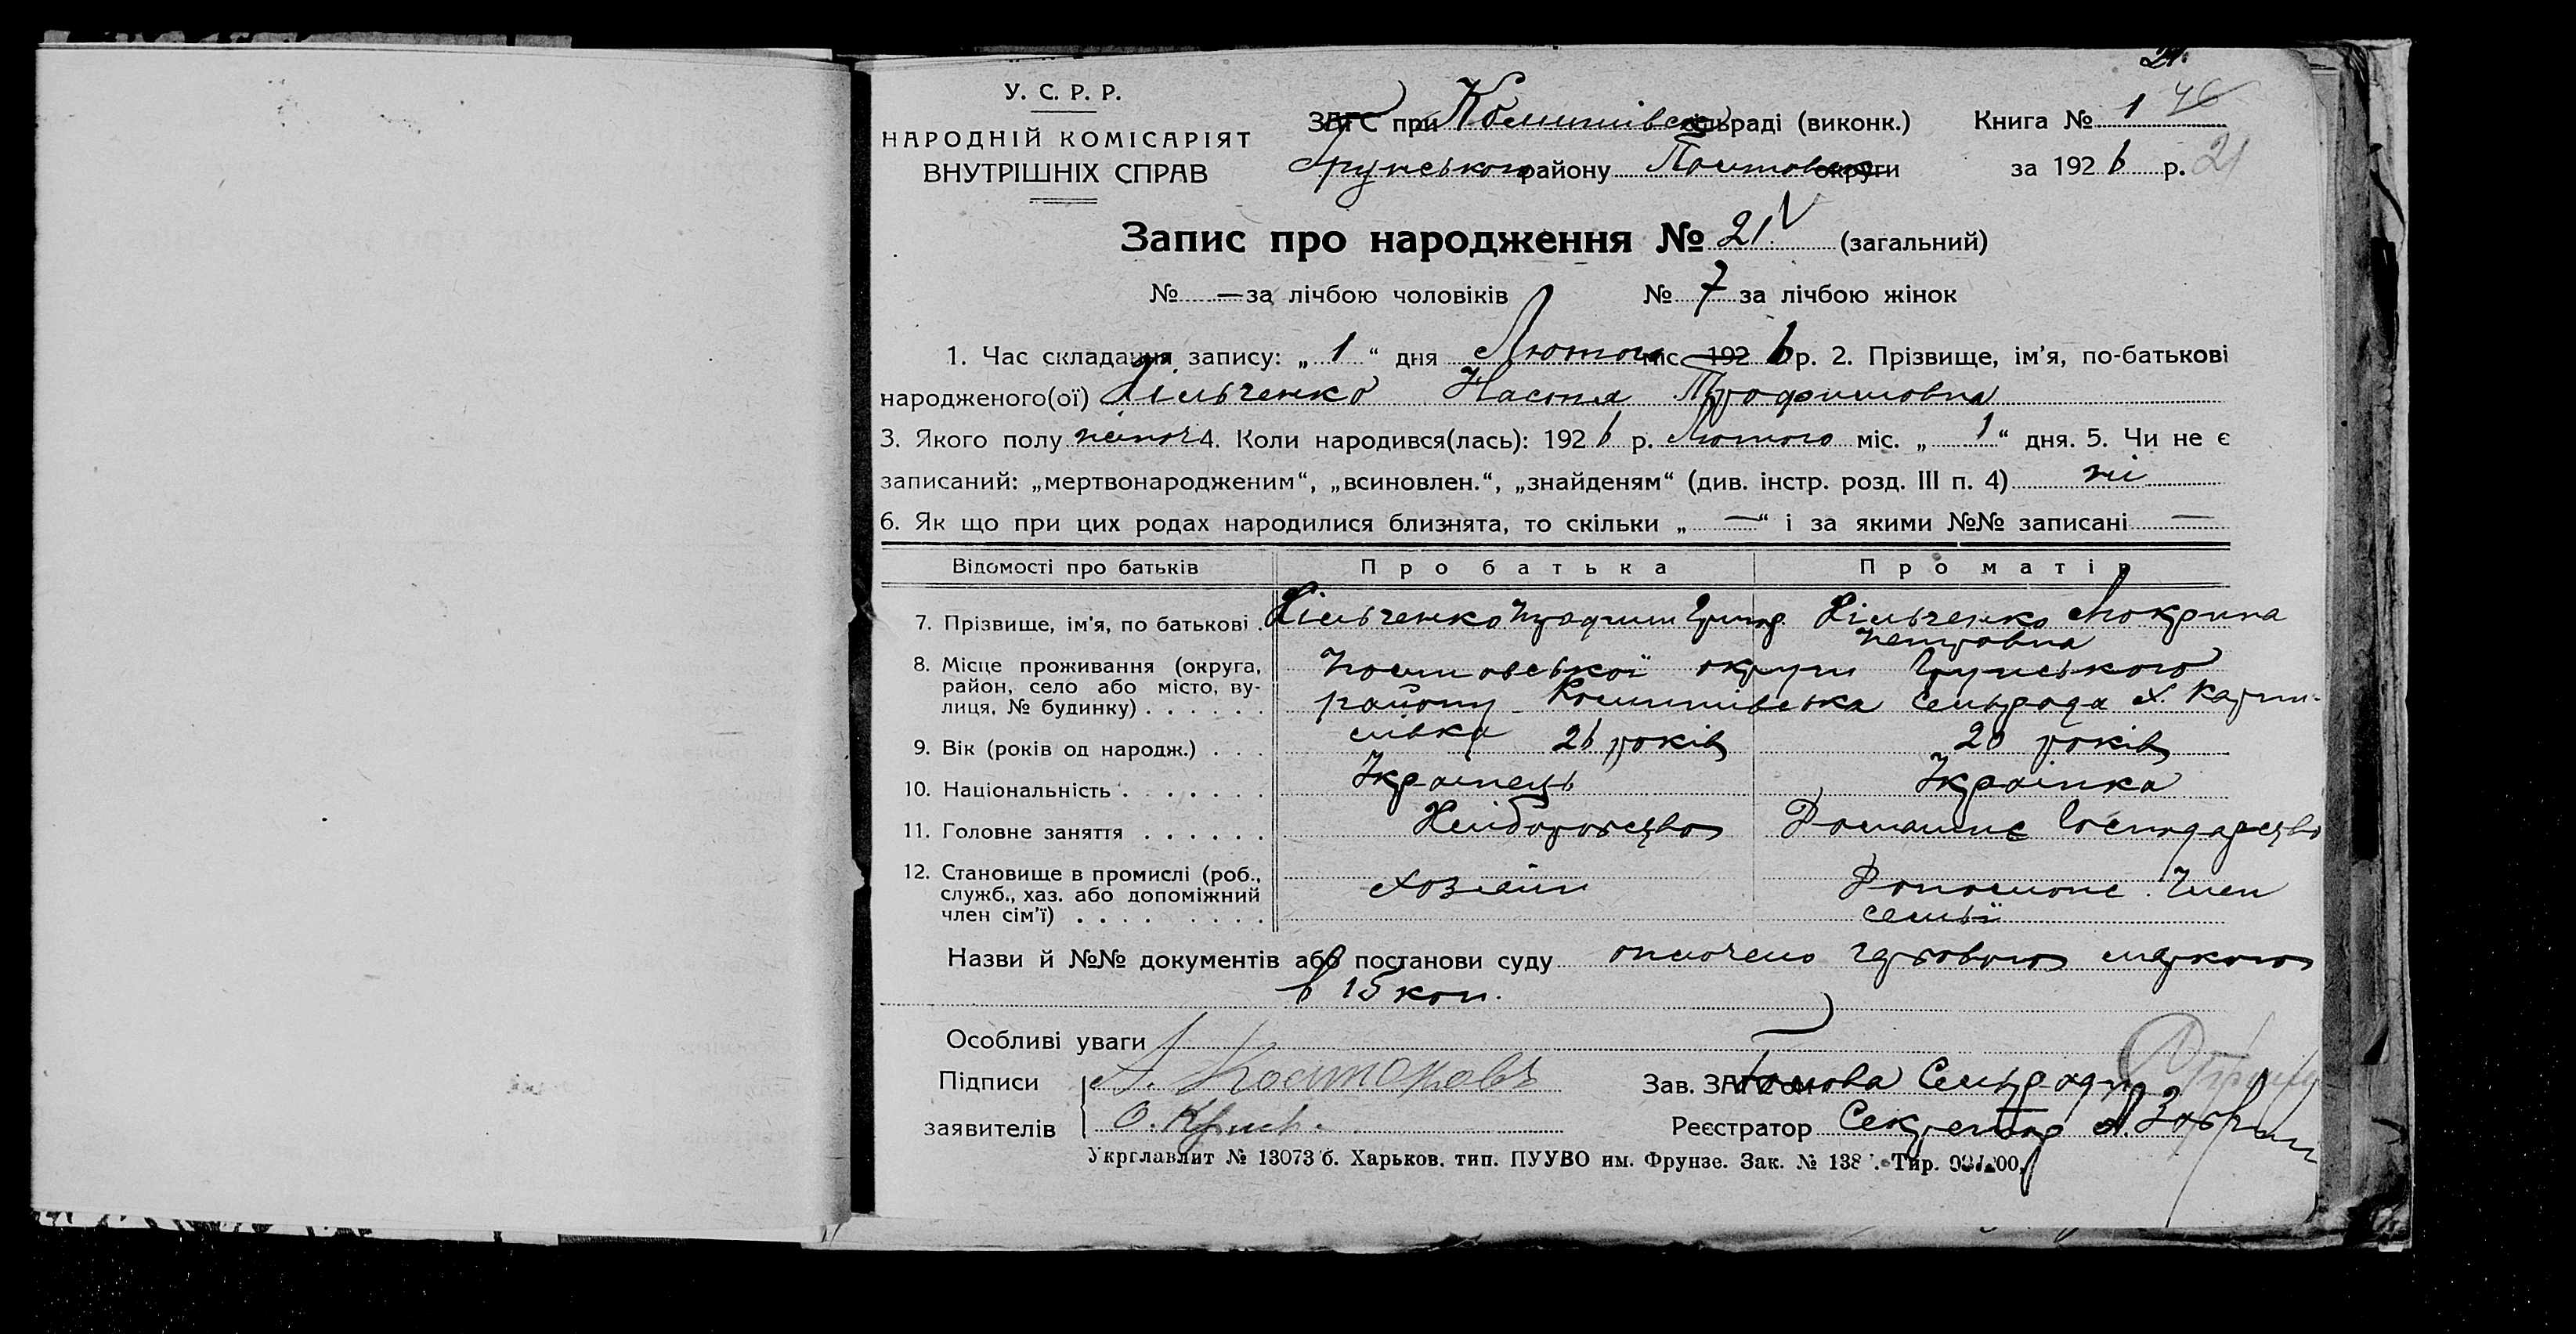 21.
У. С. Р. Р.
НАРОДНІЙ КОМІСАРІЯТ
ВНУТРІШНІХ СПРАВ
ЗАГС при сільраді (виконк.) Книга № 1 46
Грунського району Полтавської округи за 1926 р. 21
Запис про народження № 21. (загальний)
№ — за лічбою чоловіків № 7 за лічбою жінок
1. Час складання запису: „ 1 “ дня Лютого міс. 192 6 р. 2. Прізвище, ім’я, по-батькові
народженого(ої) Хільченко Настя Трофимовна
3. Якого полу жіноч 4. Коли народився(лась): 1926 р. Лютого міс. „ 1 “ дня. 5. Чи не є
записаний: „мертвонародженим“, „всиновлен.“, „знайденям“ (див. інстр. розд. III п. 4) ні
6. Як що при цих родах народилися близнята, то скільки „ — “ і за якими №№ записані —
Відомості про батьків Про батька Про матір
7. Прізвище, ім’я, по батькові . Хільченко Трофим Григор Хільченко Мокрина
Петровна
8. Місце проживання (округа, Полтавської округи Грунського
район, село або місто, ву- району сельрада х.
лиця, № будинку) . . . . . .
9. Вік (років од народж.) . . . 26 років 20 років
10. Національність . . . . . . . Українець Українка
11. Головне заняття . . . . . . Хліборобство Домашнє Господарство
12. Становище в промислі (роб.,
служб., хаз. або допоміжний Хозяїн Допоможе. Член
член сім’ї) . . . . . . . . . семьї
Назви й №№ документів або постанови суду оплочено гербовою маркою
в 15 коп.
Особливі уваги
Підписи А.
заявителів О.
Зав. ЗАГС’ом Голова Сельради
Реєстратор Секретар
Укрглавлит № 13073 б. Харьков. тип. ПУУВО им. Фрунзе. Зак. № 138 . Тир.